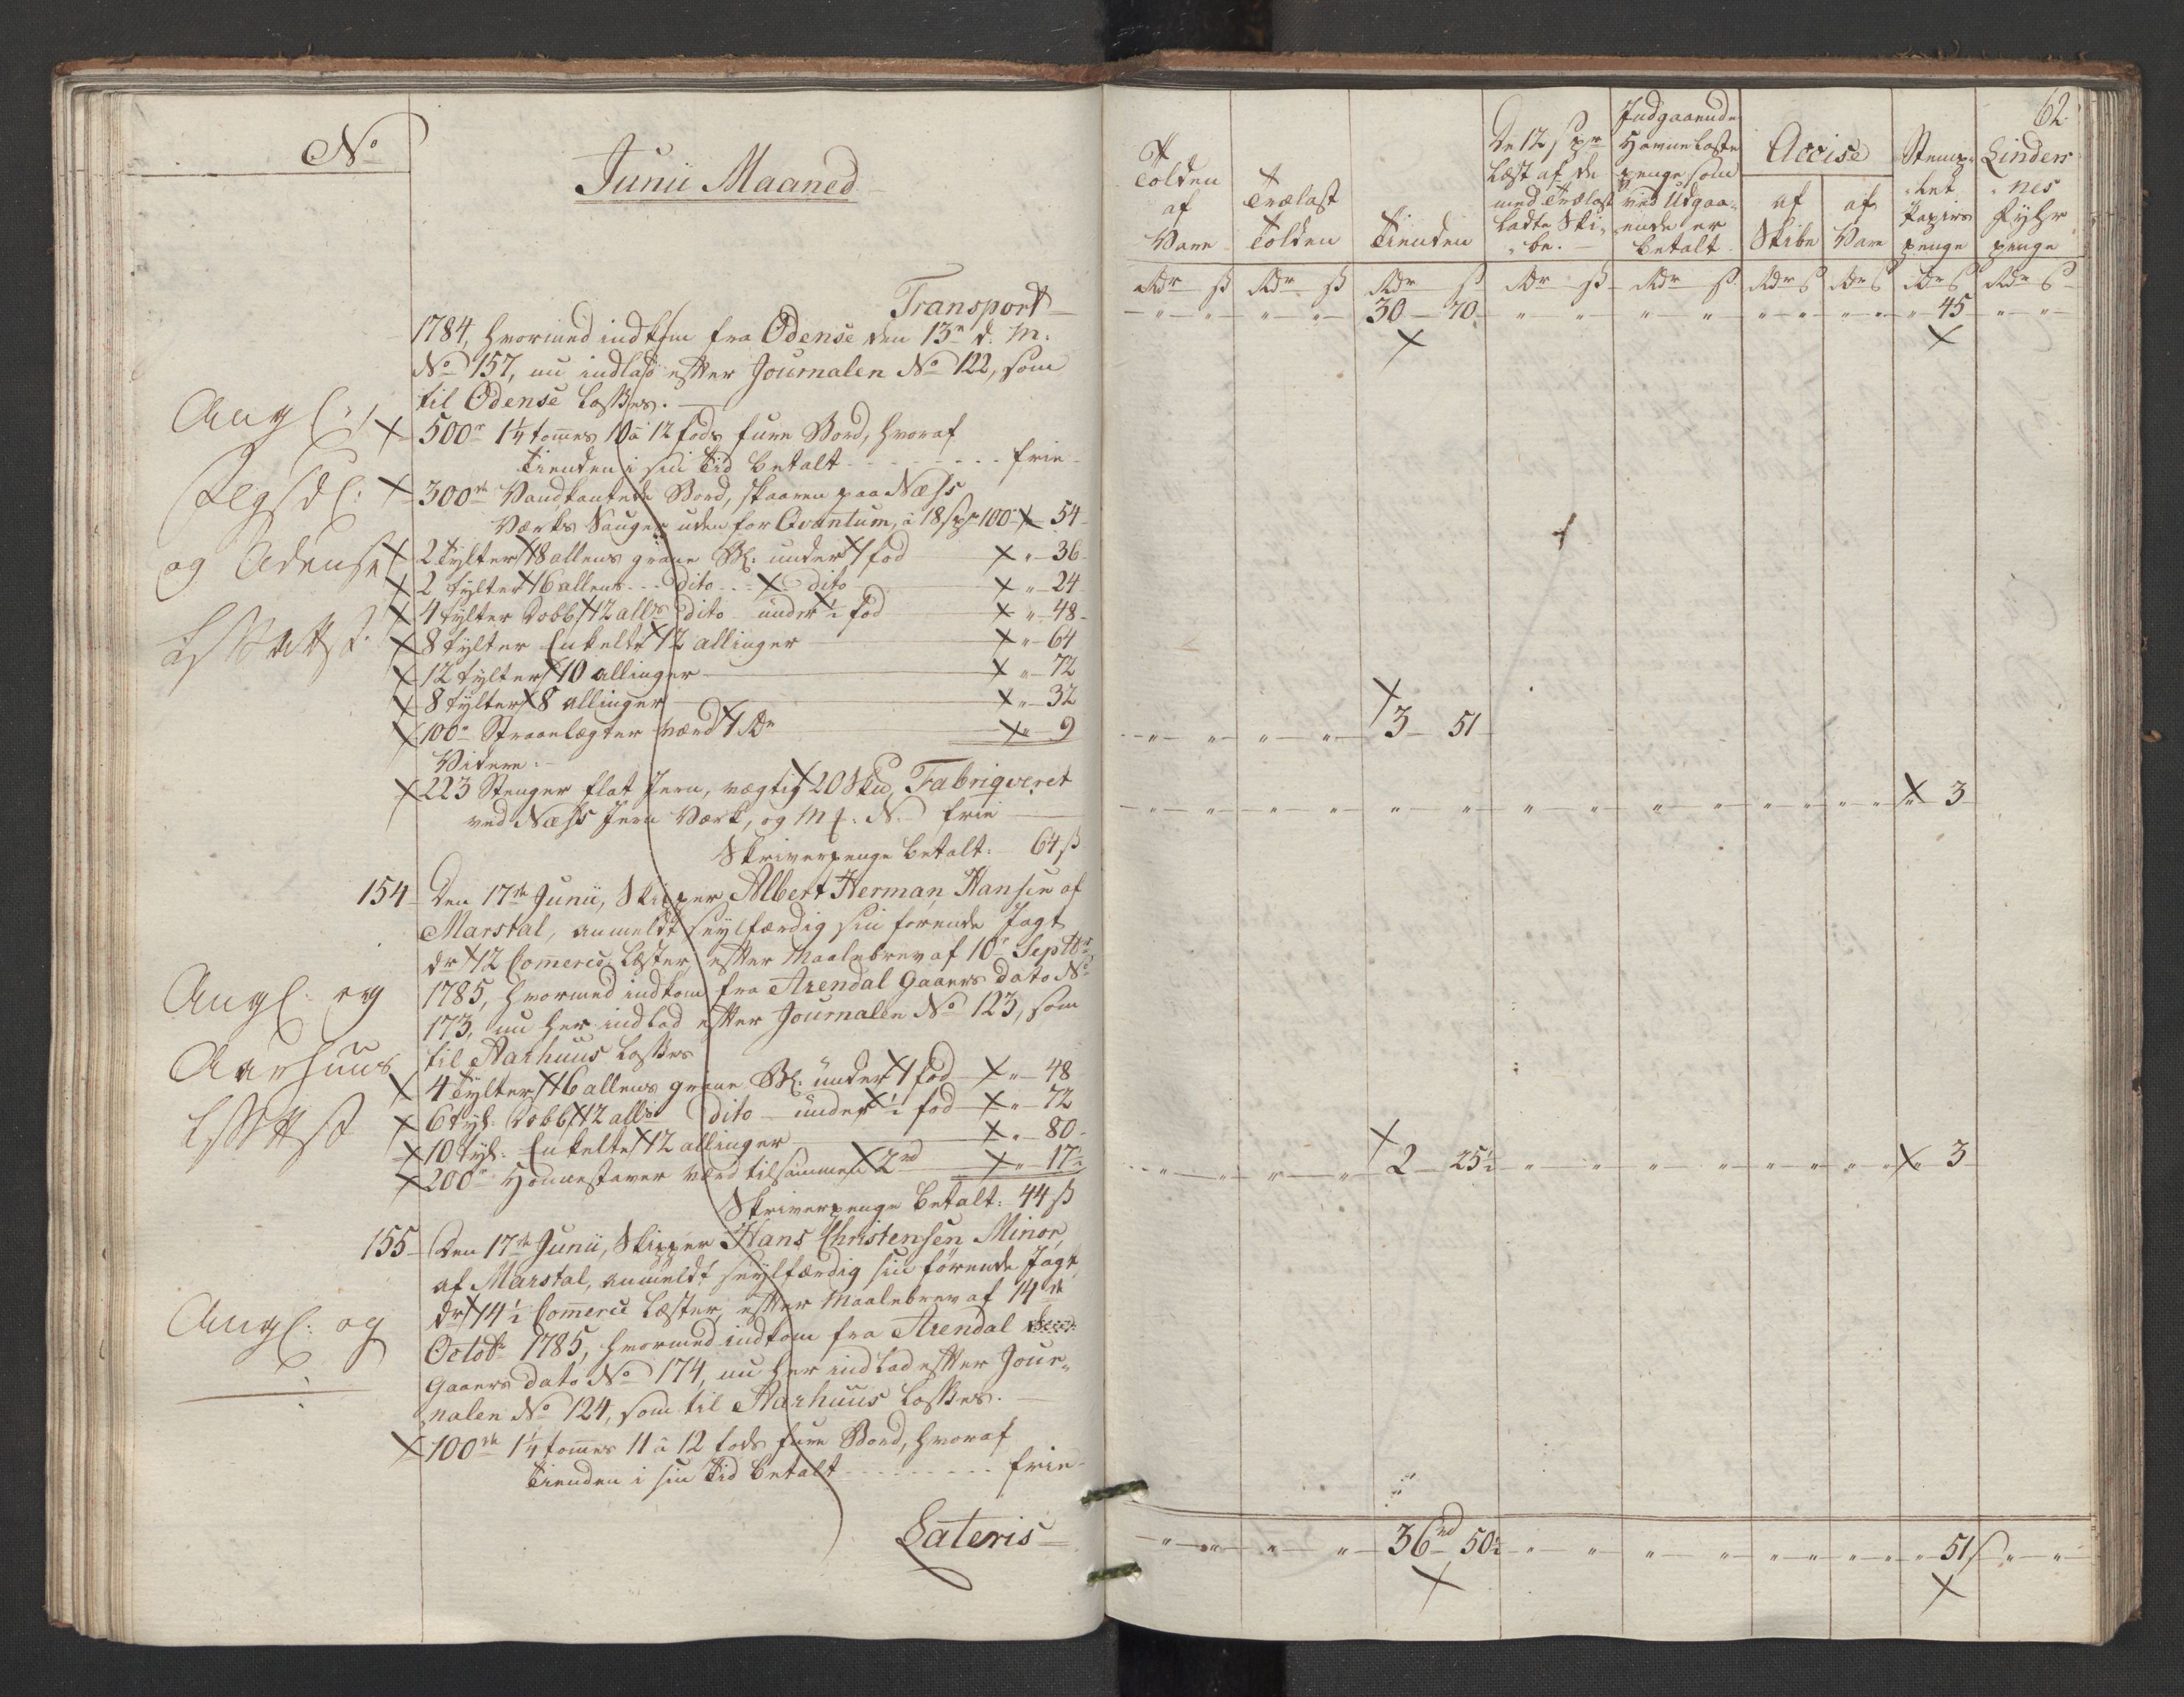 No
Junii Maaned
Transport
1784, hvormed indkom fra Odense den 13de d. M.
No 157, nu indlad efter Journalen No 122, som
til Odense losses.
500de 1¼ tommes 10 à 12 fods furu Bord, hvoraf
Tienden i sin Tid betalt - - - - - - - frie
300de Vandkantede Bord, skaaren paa Næss
Værks Sauger uden for Qvantum, à 18 s pr 100de 54
2 Tylter 18 allens grane Bl: under 1 fod " 36
2 Tylter 16 allens - - dito - - dito " 24
4 Tylter Dobb: 12 all:s dito under ½ fod " 48
8 Tylter Enkelte 12 allinger " 64
12 Tylter 10 allinger " 72
8 Tylter 8 allinger " 32
100de Straalægter værd 1 Rdr " 9
Videre:
223 Stenger flat Jern, vægtig 20 Skd, Fabriqveret
ved Næss Jern Værk, og M f. N. frie
Skriverpenge betalt: 64 ß
154 Den 17de Junii, Skipper Albert Herman Hansen af
Marstal, anmeldt seylfærdig sin førende Jagt
dr 12 Commerce Læster, efter Maalebrev af 10de Septbr
1785, hvormed indkom fra Arendal Gaars dato No
173, nu her indlad efter Journalen No 123, som
til Aarhuus losses
4 Tylter 16 allens grane Bl: under 1 fod " 48
6 Tyl: Dobb: 12 all:s dito under ½ fod " 72
10 Tyl: Enkelte 12 allinger " 80
200de Honnestaver værd tilsammen 2 rd " 17½
Skriverpenge betalt: 44 ß
155 Den 17de Junii, Skipper Hans Christensen Minor,
af Marstal, anmeldt seylfærdig sin førende Jagt
dr 14½ Commerce Læster, efter Maalebrev af 14de
Octobr 1785, hvormed indkom fra Arendal
Gaars dato No 174, nu her indlad efter Jour-
nalen No 124, som til Aarhuus losses.
100de 1¼ tommes 11 à 12 fods furu Bord, hvoraf
Tienden i sin Tid betalt - - - - - - - frie
Lateris
Angl:
og Odense
Angl: og
Aarhuus
Angl: og
62.
Tolden af Vare
Trælast Tolden
Tienden
De 12 s pr Læst af de med Trælast ladte Skibe.
Indgaaende Havne Laste penge som ved Udgaaende er betalt
Accise
af Skibe
af Vare
Stemplet Papirs penge
Lindernes Fyhr penge
Rdr ß Rdr ß Rdr ß Rdr ß Rdr ß Rdr ß Rdr ß Rdr ß Rdr ß
30 70 45
3 51
3
2 25½ 3
36 rd 50½ 51 s